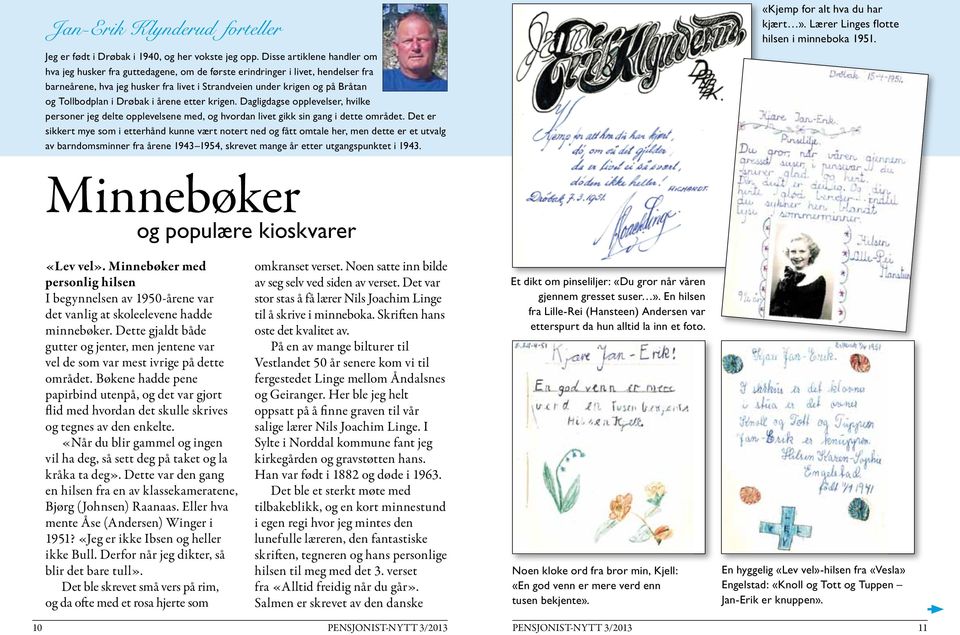 Jan-Erik Klynderud forteller
Jeg er født i Drøbak i 1940, og her vokste jeg opp. Disse artiklene handler om
hva jeg husker fra guttedagene, om de første erindringer i livet, hendelser fra
barneårene, hva jeg husker fra livet i Strandveien under krigen og på Bråtan
og Tollbodplan i Drøbak i årene etter krigen. Dagligdagse opplevelser, hvilke
personer jeg delte opplevelsene med, og hvordan livet gikk sin gang i dette området. Det er
sikkert mye som i etterhånd kunne vært notert ned og fått omtale her, men dette er et utvalg
av barndomsminner fra årene 1943–1954, skrevet mange år etter utgangspunktet i 1943.
Minnebøker
og populære kioskvarer
«Lev vel». Minnebøker med
personlig hilsen
I begynnelsen av 1950-årene var
det vanlig at skoleelevene hadde
minnebøker. Dette gjaldt både
gutter og jenter, men jentene var
vel de som var mest ivrige på dette
området. Bøkene hadde pene
papirbind utenpå, og det var gjort
flid med hvordan det skulle skrives
og tegnes av den enkelte.
«Når du blir gammel og ingen
vil ha deg, så sett deg på taket og la
kråka ta deg». Dette var den gang
en hilsen fra en av klassekameratene,
Bjørg (Johnsen) Raanaas. Eller hva
mente Åse (Andersen) Winger i
1951? «Jeg er ikke Ibsen og heller
ikke Bull. Derfor når jeg dikter, så
blir det bare tull».
Det ble skrevet små vers på rim,
og da ofte med et rosa hjerte som
omkranset verset. Noen satte inn bilde
av seg selv ved siden av verset. Det var
stor stas å få lærer Nils Joachim Linge
til å skrive i minneboka. Skriften hans
oste det kvalitet av.
På en av mange bilturer til
Vestlandet 50 år senere kom vi til
fergestedet Linge mellom Åndalsnes
og Geiranger. Her ble jeg helt
oppsatt på å finne graven til vår
salige lærer Nils Joachim Linge. I
Sylte i Norddal kommune fant jeg
kirkegården og gravstøtten hans.
Han var født i 1882 og døde i 1963.
Det ble et sterkt møte med
tilbakeblikk, og en kort minnestund
i egen regi hvor jeg mintes den
lunefulle læreren, den fantastiske
skriften, tegneren og hans personlige
hilsen til meg med det 3. verset
fra «Alltid freidig når du går».
Salmen er skrevet av den danske
10 PENSJONIST-NYTT 3/2013
Jan-Erik Klynderud,
Drøbak.
Kjemp for alt hva du har kjært,
dø, om så det gjelder,
da er livet ei så svært,
døden ikke heller!
Drøbak, 7.3.1951.
Joach. Linge
«Kjemp for alt hva du har
kjært…». Lærer Linges flotte
hilsen i minneboka 1951.
Drøbak 15-4-1951.
Kjære Jan-Erik.
Pinselilje.
Du gror når våren gjennem
gresset suser
Hilsen
Lille-Rei
Hansteen
9½ år
Et dikt om pinseliljer: «Du gror når våren
gjennem gresset suser…». En hilsen
fra Lille-Rei (Hansteen) Andersen var
etterspurt da hun alltid la inn et foto.
Kjære Jan-Erik!
En god venn er mere
verd en tusen bekjente
Hilsen Kjell.
Kjære Jan-Erik.
Knoll og Tott og Tuppen
Jan-Erik er knuppen.
Hilsen Karen-Sophie
Engelstad
Noen kloke ord fra bror min, Kjell:
«En god venn er mere verd enn
tusen bekjente».
En hyggelig «Lev vel»-hilsen fra «Vesla»
Engelstad: «Knoll og Tott og Tuppen –
Jan-Erik er knuppen».
PENSJONIST-NYTT 3/2013 11